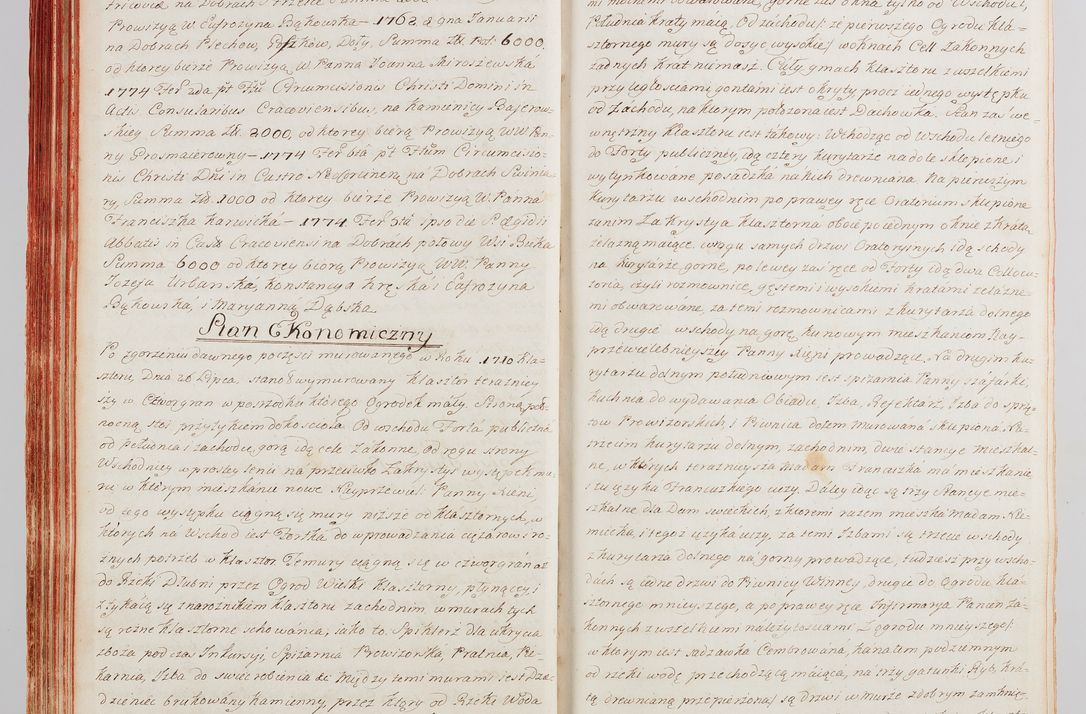 Prowizyą W Eufrozyna Bąkowska – 1762 2 gna Januarii
na Dobrach Plechow, Paszków, Doły, Summa Zł. Pol: 6000,
od ktorey bierze Prowizyą W. Panna Joanna Miroszewska
1774 Fer 2da pt Ftū Circumcisionis Christi Domini in
Actis Consularibus Cracoviensibus, na kamienicy Bajerow-
skiey Summa Zł. 2000, od ktorey biorą Prowizyą WW Pan-
ny Grosmaierowny – 1774 Fer 6ta pt Ftum Circumcisio-
nis Christi Dni in Castro
ry, Summa Złł. 1000 od ktorey bierze Prowizyą W. Panna
Franciszka Karwicka – 1774 Fer 6ta ipso die S. Ægidii
Abbatis in Castr Cracoviensi na Dobrach połowy Wsi Buska
Summa 6000 od ktorey biorą Prowizyą WW. Panny
Jozefa Urbańska, Konstancya Kręska i Eufrozyna
Bąkowska, i Maryanna Dąbska
Stan Ekonomiczny
Po zgorzeniu dawnego poczęści murowanego w Roku 1710 Kla-
sztoru, Dnia 26 Lipca, stanoł wymurowany Klasztor teraznicy
szy w Czworgran w posrzodku ktorego Ogrodek mały. Stroną puł-
nocną stoi przytykiem do koscioła. Od wschodu Forta publiczna
od Południa i zachodu, górą idą cele Zakonne, Od rogu strony
Wschodniey wprost sieni na przeciwko Zakrystyi występek mu-
ru w ktorym mieszkanie nowe Nayprzewiel: Panny Xieni,
od tego występku ciągną się mury niższe od Klasztornych, w
ktorych na Wschod iest Fortka do wprowadzania cięzarow i ro-
żnych potrzeb w Klasztor. Te mury ciągną się w czworgran aż
do Rzeki Dłubni przez Ogrod Wielki Klasztorny, płynącey, i
stykaią się z narożnikiem Klasztoru zachodnim, w murach tych
są rożne Klasztorne schowania, iako to. Spiklerz dla ukrycia
zboża podczas Inkursyi, Spizarnia Prowizorska, Pralnia, Pie-
karnia, Izba do swiec robienia &c Między temi murami iest Dzie-
dzieniec brukowany kamienny, przez ktory od Rzeki Woda
Południa kraty maią, Od zachodu zaś pierwszego Ogrodu Kla-
sztornego mury są dosyc wysokie w oknach Cell Zakonnych
żadnych krat niemasz. Cały gmach Klasztoru z wszelkiemi
przyległosciami gontami iest okryty procz iednego występku
od Zachodu, na ktorym położona iest Dachowka. Stan zas we-
wnętrzny Klasztoru iest takowy: Wchodząc od Wschodu letniego
do Forty publiczney, idą cztery kurytarze na dole sklepione i
wytynkowane posadzka na kich drewniana. Na pierwszym
kurytarzu wschodnim po prawey ręce Oratorium skupione
za nim Zakrystya Klasztorna oboie po iednym oknie z kratą
żelazną maiące, w rogu samych drzwi Oratorynych idą schody
na kurytarze gorne, po lewey zaś ręce od Forty idą dwa Collocu-
toria, czyli rozmownice, gęstemi i wysokiemi kratami żelazne-
mi obwarowane, za temi rozmownicami z kurytarza dolnego
idą drugie wschody na gorę ku nowym mieszkaniom Nay-
przewielebnieyszey Panny Xieni prowadzące, Na drugim ku-
rytarzu dolnym południowym iest spizarnia Panny Szafarki,
kuchnia do wydawania Obiadu, Izba, Refektarz, Izba do sprzę-
tow Prowizorskich, i Piwnica dołem Murowana skupiona, Na
trzecim kurytarzu dolnym, zachodnim, dwie stancye mieszkal-
ne, w ktorych teraznieysza Madam Franciszka ma mieszkanie,
i tu ięzyka Francuzkiego uczy. Daley idąc są trzy Stancye mie-
szkalne dla Dam swieckich, z ktoremi razem mieszka Madam Nie-
miecka, i tegoż ięzyka uczy, za temi Izbami są trzecie wschody
z kurytarza dolnego na gorny prowadzące, tudzież przy wscho-
dach są iedne drzwi do Piwnicy Winney, drugie do Ogrodu Kla-
sztornego mnieyszego, a po prawey ręce Infirmarya Panien Za-
konnych z wszelkiemi należytosciami Z ogrodu mnieyszego
w ktorym iest sadzawka Cembrowana, kanałem podziemnym
od rzeki wodę przechodzącą maiąca, na trzy gatunki Ryb, kra-
tą drewnianą przepierzona są drzwi w murze z dobrym zamknię-